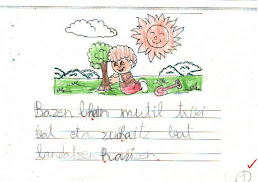 Bazen behin mutil txiki
bat eta zuhaitz bat
landatzen hasi zen.
1